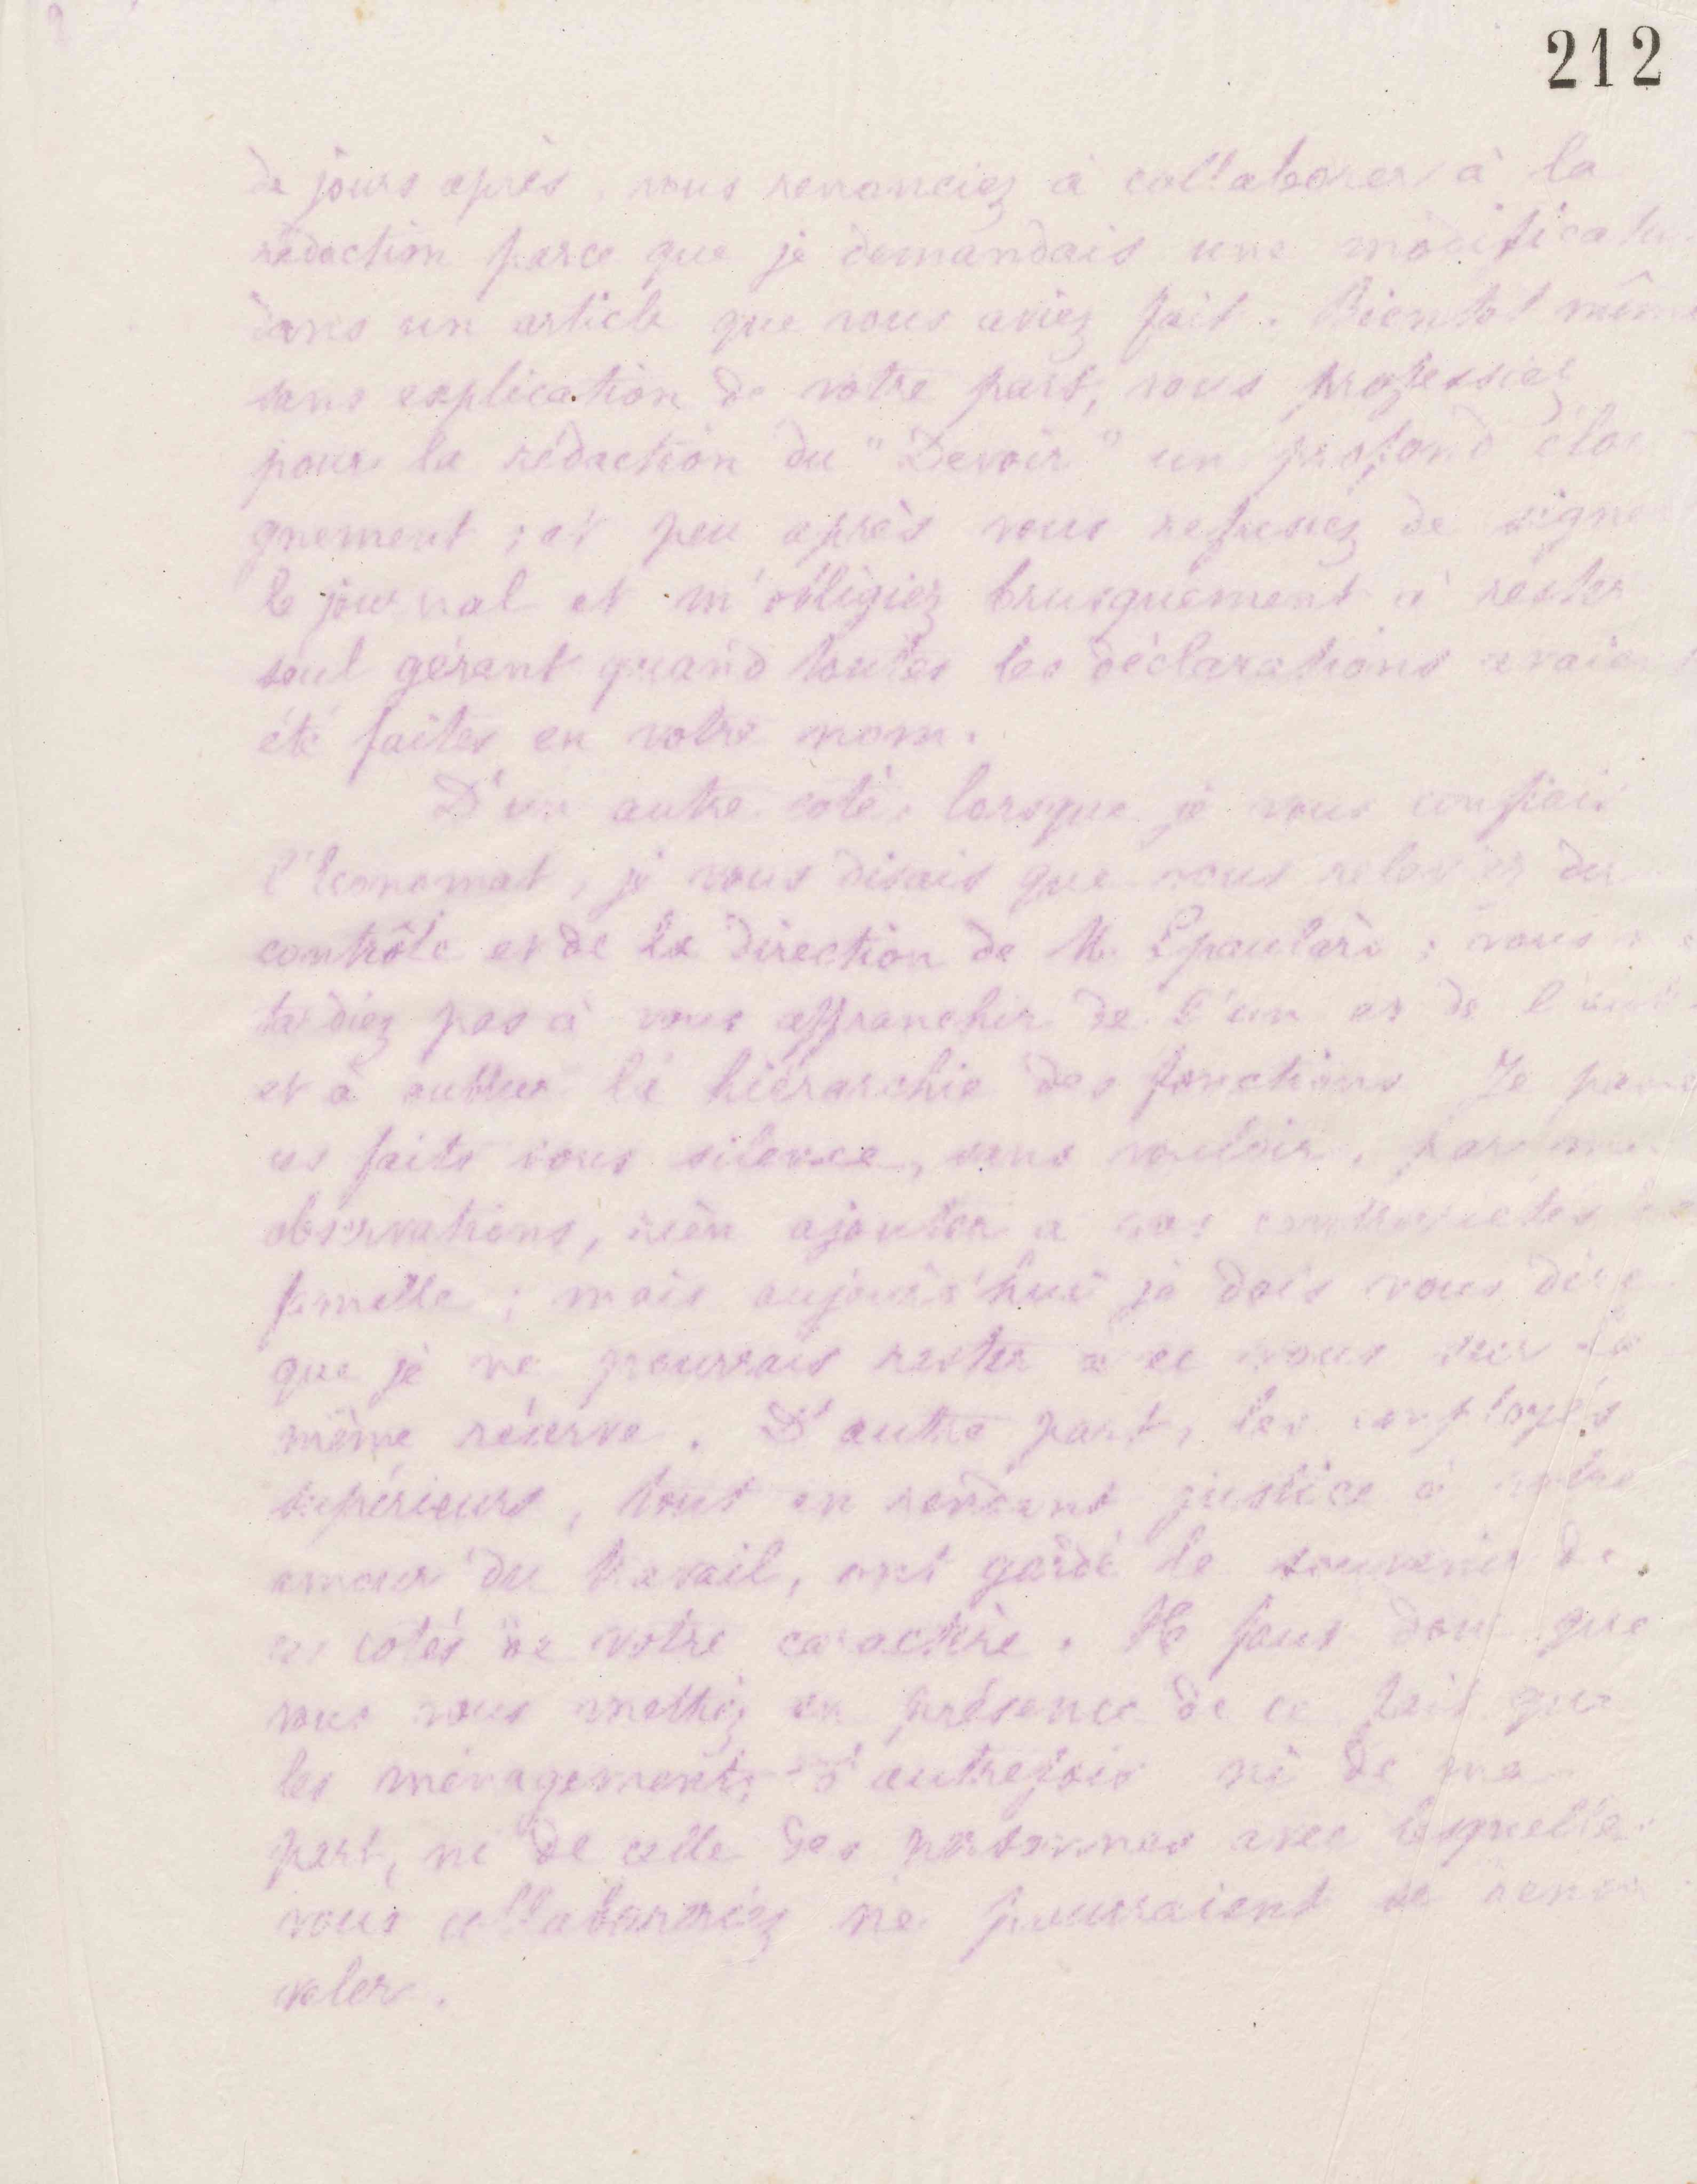 212
de jours après, vous renonciez à collaborer à la
rédaction parce que je demandais une modificat
dans un article que vous aviez fait. Bientôt même
sans explication de votre part, vous professiez
pour la rédaction du "Devoir" un profond éloi
gnement ; et peu après vous refusiez de signer
le journal et m'obligiez brusquement à rester
seul gérant quand toutes les déclarations avaient
été faites en votre nom.
D'un autre coté, lorsque je vous confiai
l'Economat, je vous disais que vous releviez du
contrôle et de la direction de M. Epaulard ; vous
tardiez pas à vous affranchir de l'un et de l'autre
et à oublier la hiérarchie des fonctions. Je passai
ces faits sous silence, sans vouloir, par mes
observations, rien ajouter à vos contrariétés de
famille ; mais aujourd'hui je dois vous dire
que je ne pourrais rester avec vous sur la
même réserve. D'autre part, les employés
supérieurs, tout en rendant justice à votre
amour du travail, ont gardé le souvenir de
ces cotés de votre caractère. Il faut donc que
vous vous mettiez en présence de ce fait que
les ménagements d'autrefois ni de ma
part, ni de celle des personnes avec lesquelles
vous collaboreriez ne pourraient se renou
veler.